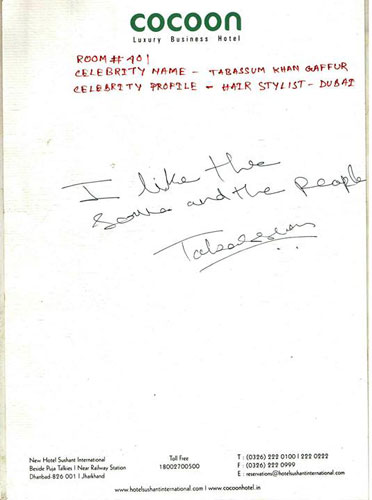 cocoon
Luxury Business Hotel
ROOM # 401
CELEBRITY NAME - TABASSUM KHAN GAFFUR
CELEBRITY PROFILE - HAIR STYLIST - DUBAI
I like the
and the People
Tabassum
New Hotel Sushant International
Beside Puja Talkies | Near Railway Station
Dhanbad 826 001 | Jharkhand
Toll Free
18002700500
T : (0326) 222 0100 | 222 0222
F : (0326) 222 0999
E : reservations@hotelsushantinternational.com
www.hotelsushantinternational.com | www.cocoonhotel.in